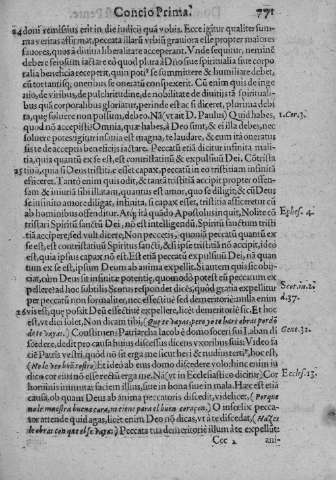 Concio Prima. 771
24 doni remissius erit in die iudicij quā vobis. Ecce igitur qualiter summa veritas affirmat, peccata illarū vrbiū grauiora esse propter maiores fauores, quos à diuina liberalitate acceperant. Vnde sequitur, neminē debere se ipsum iactare eò quod plura à Dño siue spiritualia siue corporalia beneficia receperit, quin potiꝰ se summittere & humiliare debet, cū tot tantisq; oneribus se oneratū conspexerit. Cū enim quis de ingenio, de viribus, de pulchritudine, de nobilitate de diuitijs tā spiritualibus quā corporalibus gloriatur, perinde est ac si diceret, plurima debita, quę soluere non possum, debeo. Nā (vt ait D. Paulus) Quid habes, 1. Cor. 3.
quod nō accepisti? Omnia, quæ habes, à Deo sunt, & ei illa debes, nec soluere potes: igitur insania est magna, te laudare, & eum ita oneratū
siste de acceptis beneficijs iactare. Peccatū etiā dicitur infinita malitia, quia quantū ex se est, est contristatiuū & expulsiuū Dei. Cōtrista
25 tiuū, quia si Deus tristitiæ esset capax, peccatū in eo tristitiam infinitā
efficeret. Tantò enim quis odit, & tantā tristitiā accipit propter offensam & iniuriā sibi illatam, quantus est amor, quo se diligit; & cū Deus
se infinito amore diligat, infinita, si capax esset, tristitia afficeretur cū
ab hominibus offenditur. Atq; ità quādo Apostolus inquit, Nolite cō Ephes. 4.
tristari Spiritū sanctū Dei, nō est intelligendū, Spiritū sanctum tristitiā accipere, sed vult dicere, Non peccetis, quoniā peccatū quantū ex
se est, est contristatiuū Spiritus sancti, & si ipse tristitiā nō accipit, ideo
est, quia ipsius capax nō est. Est etiā peccatū expulsiuū Dei, nā quantum ex se est, ipsum Deum ab anima expellit. Si autem quis scire cupiat, cūm Deus sit infinitæ potentiæ, quomodò potest eū peccatum expellere? ad hoc subtilis Scotus respondet dicēs, quòd gratia expellitur Scot. in 2.
per peccatū non formaliter, nec effectiuè sed demeritoriè: nulla enim d. 37.
26 vis est, quę possit Deū effectiuè expellere, licèt demeritoriè sic. Et hoc
est, vt dici solet, Non dicam tibi, (Que te vayas, pero yo te hare obras pordō
de te vayas.) Constituerat Patriarcha Iacob è domo soceri sui Laban discedere, dedit pro causa huius discessus dicens vxoribus suis: Video faciē Patris vestri, quòd nō sit erga me sicut heri & nudiustertiꝰ, hoc est, Gene. 31.
(Malo veo vuestro rostro.) Et ideò ab eius domo discedere volo; hoc enim indico cor eius nō esse rectū erga me. Nā (vt in Ecclesiastico dicitur) Cor Eccles. 13.
hominis immutat faciem illius, siue in bona siue in mala. Hæc est etiā
causa, ob quam Deus ab anima peccatoris discedit, videlicet, (Porque
male muestra buena cara, ne tiene para el buen coraçon.) O infœlix peccator attende quid agas, licèt enim Deo nō dicas, vt à te discedat, (Hazes
de obras con que el se vaya.) Peccata tua demeritoriè illum à te expellūt:
Ccc 2 ani-